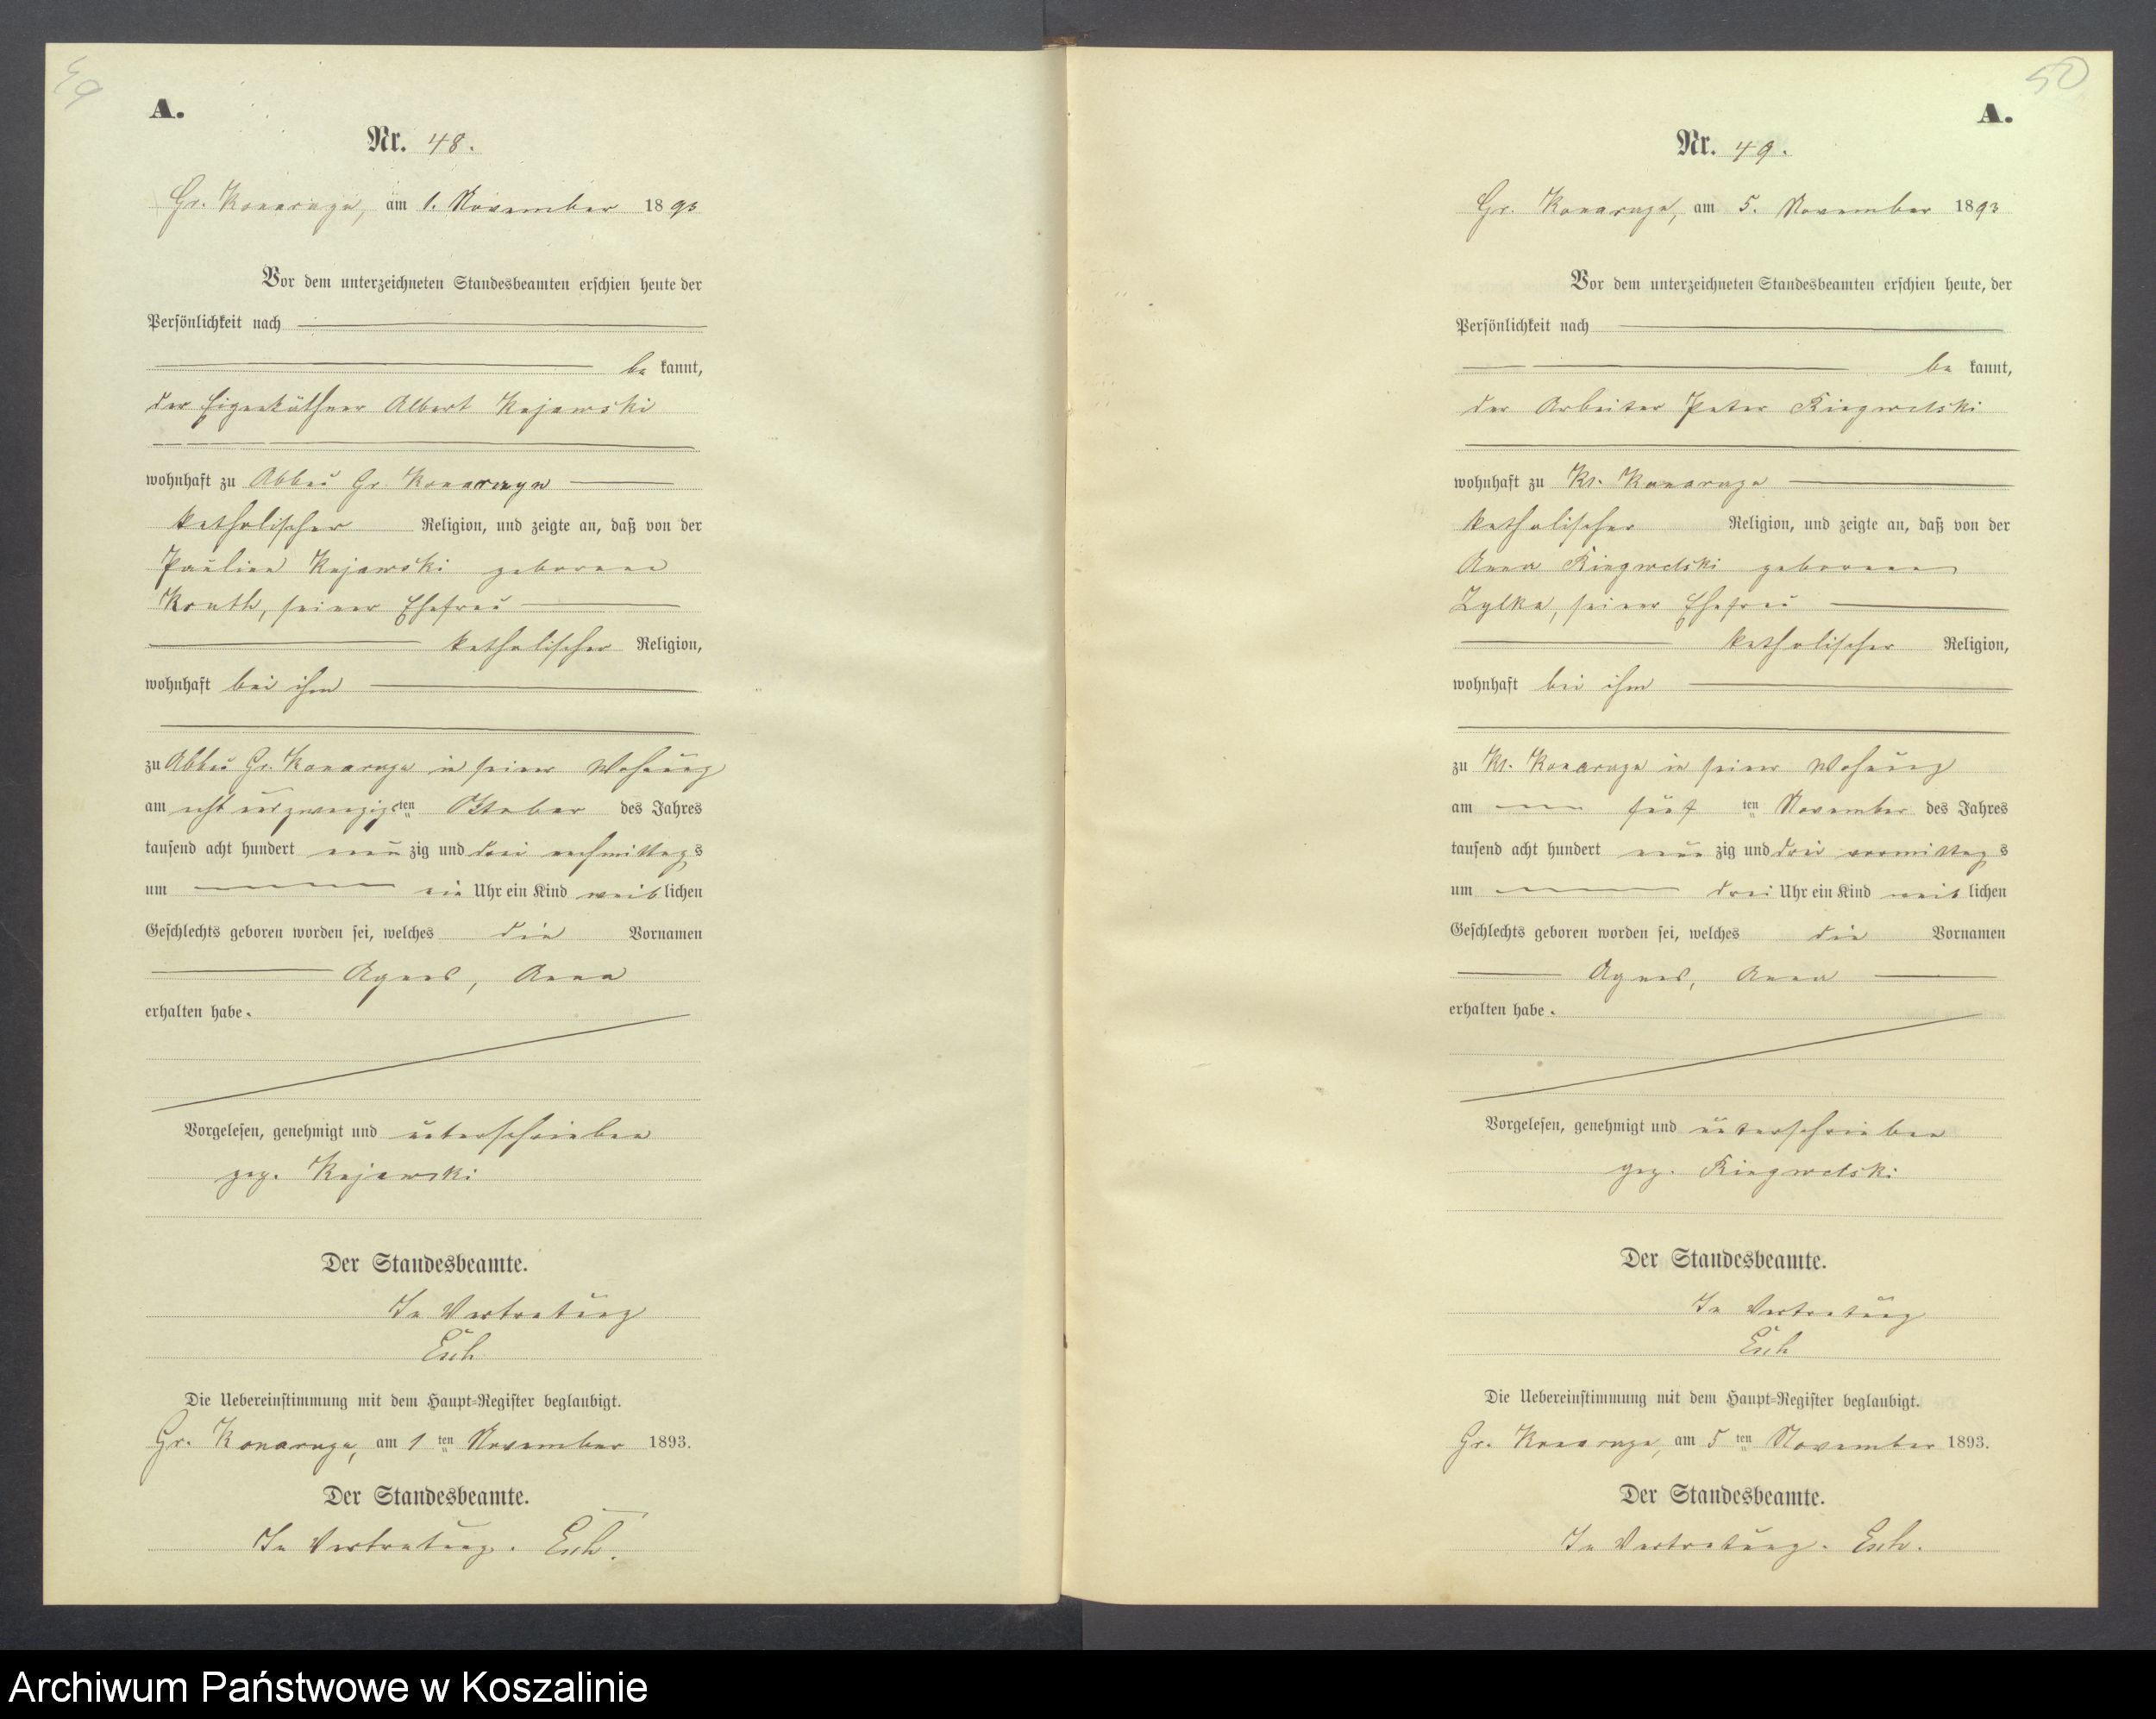 49
A.
Nr. 48.
Gr. Konarczyn, am 1. November 1893
Vor dem unterzeichneten Standesbeamten erschien heute der
Persönlichkeit nach
be kannt,
der Eigenkäthner Albert Kujawski
wohnhaft zu Abbau Gr. Konarczyn
katholischer Religion, und zeigte an, daß von der
Pauline Kujawski geborene
Knuth, seiner Ehefrau
katholischer Religion,
wohnhaft bei ihm
zu Abbau Gr. Konarczyn in seiner Wohnung
am acht und zwanzigsten ten Oktober des Jahres
tausend acht hundert neun zig und drei nachmittags
um ein Uhr ein Kind weib lichen
Geschlechts geboren worden sei, welches die Vornamen
Agnes, Anna
erhalten habe.
Vorgelesen, genehmigt und unterschrieben
gez. Kujawski
Der Standesbeamte.
In Vertretung
Esch
Die Uebereinstimmung mit dem Haupt-Register beglaubigt.
Gr. Konarczyn, am 1 ten November 1893.
Der Standesbeamte.
In Vertretung. Esch.
50
A.
Nr. 49.
Gr. Konarczyn, am 5. November 1893
Vor dem unterzeichneten Standesbeamten erschien heute, der
Persönlichkeit nach
be kannt,
der Arbeiter Peter
wohnhaft zu Kl. Konarczyn
katholischer Religion, und zeigte an, daß von der
Anna geborenen
Zylka, seiner Ehefrau
katholischer Religion,
wohnhaft bei ihm
zu Kl. Konarczyn in seiner Wohnung
am fünf ten November des Jahres
tausend acht hundert neun zig und drei vormittags
um drei Uhr ein Kind weib lichen
Geschlechts geboren worden sei, welches die Vornamen
Agnes, Anna
erhalten habe.
Vorgelesen, genehmigt und unterschrieben
gez.
Der Standesbeamte.
In Vertretung
Esch
Die Uebereinstimmung mit dem Haupt-Register beglaubigt.
Gr. Konarczyn, am 5 ten November 1893.
Der Standesbeamte.
In Vertretung. Esch.
Archiwum Państwowe w Koszalinie